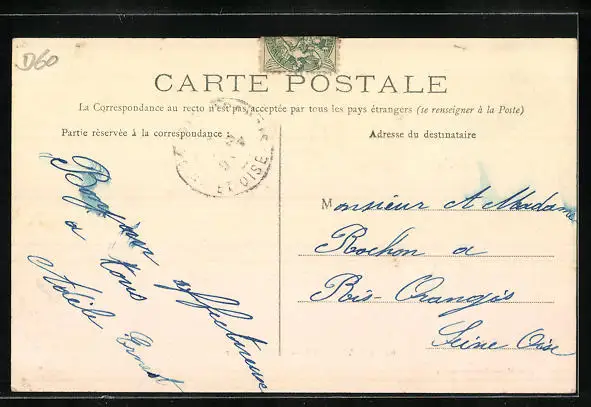 D60
CARTE POSTALE
La Correspondance au recto n'est pas acceptée par tous les pays étrangers (se renseigner à la Poste)
Partie réservée à la correspondance :
Adresse du destinataire
ET OISE
Monsieur et Madame
Rochon a
Ris-Orangis
Seine Oise
affectueux
a tous
Adèle Ernest